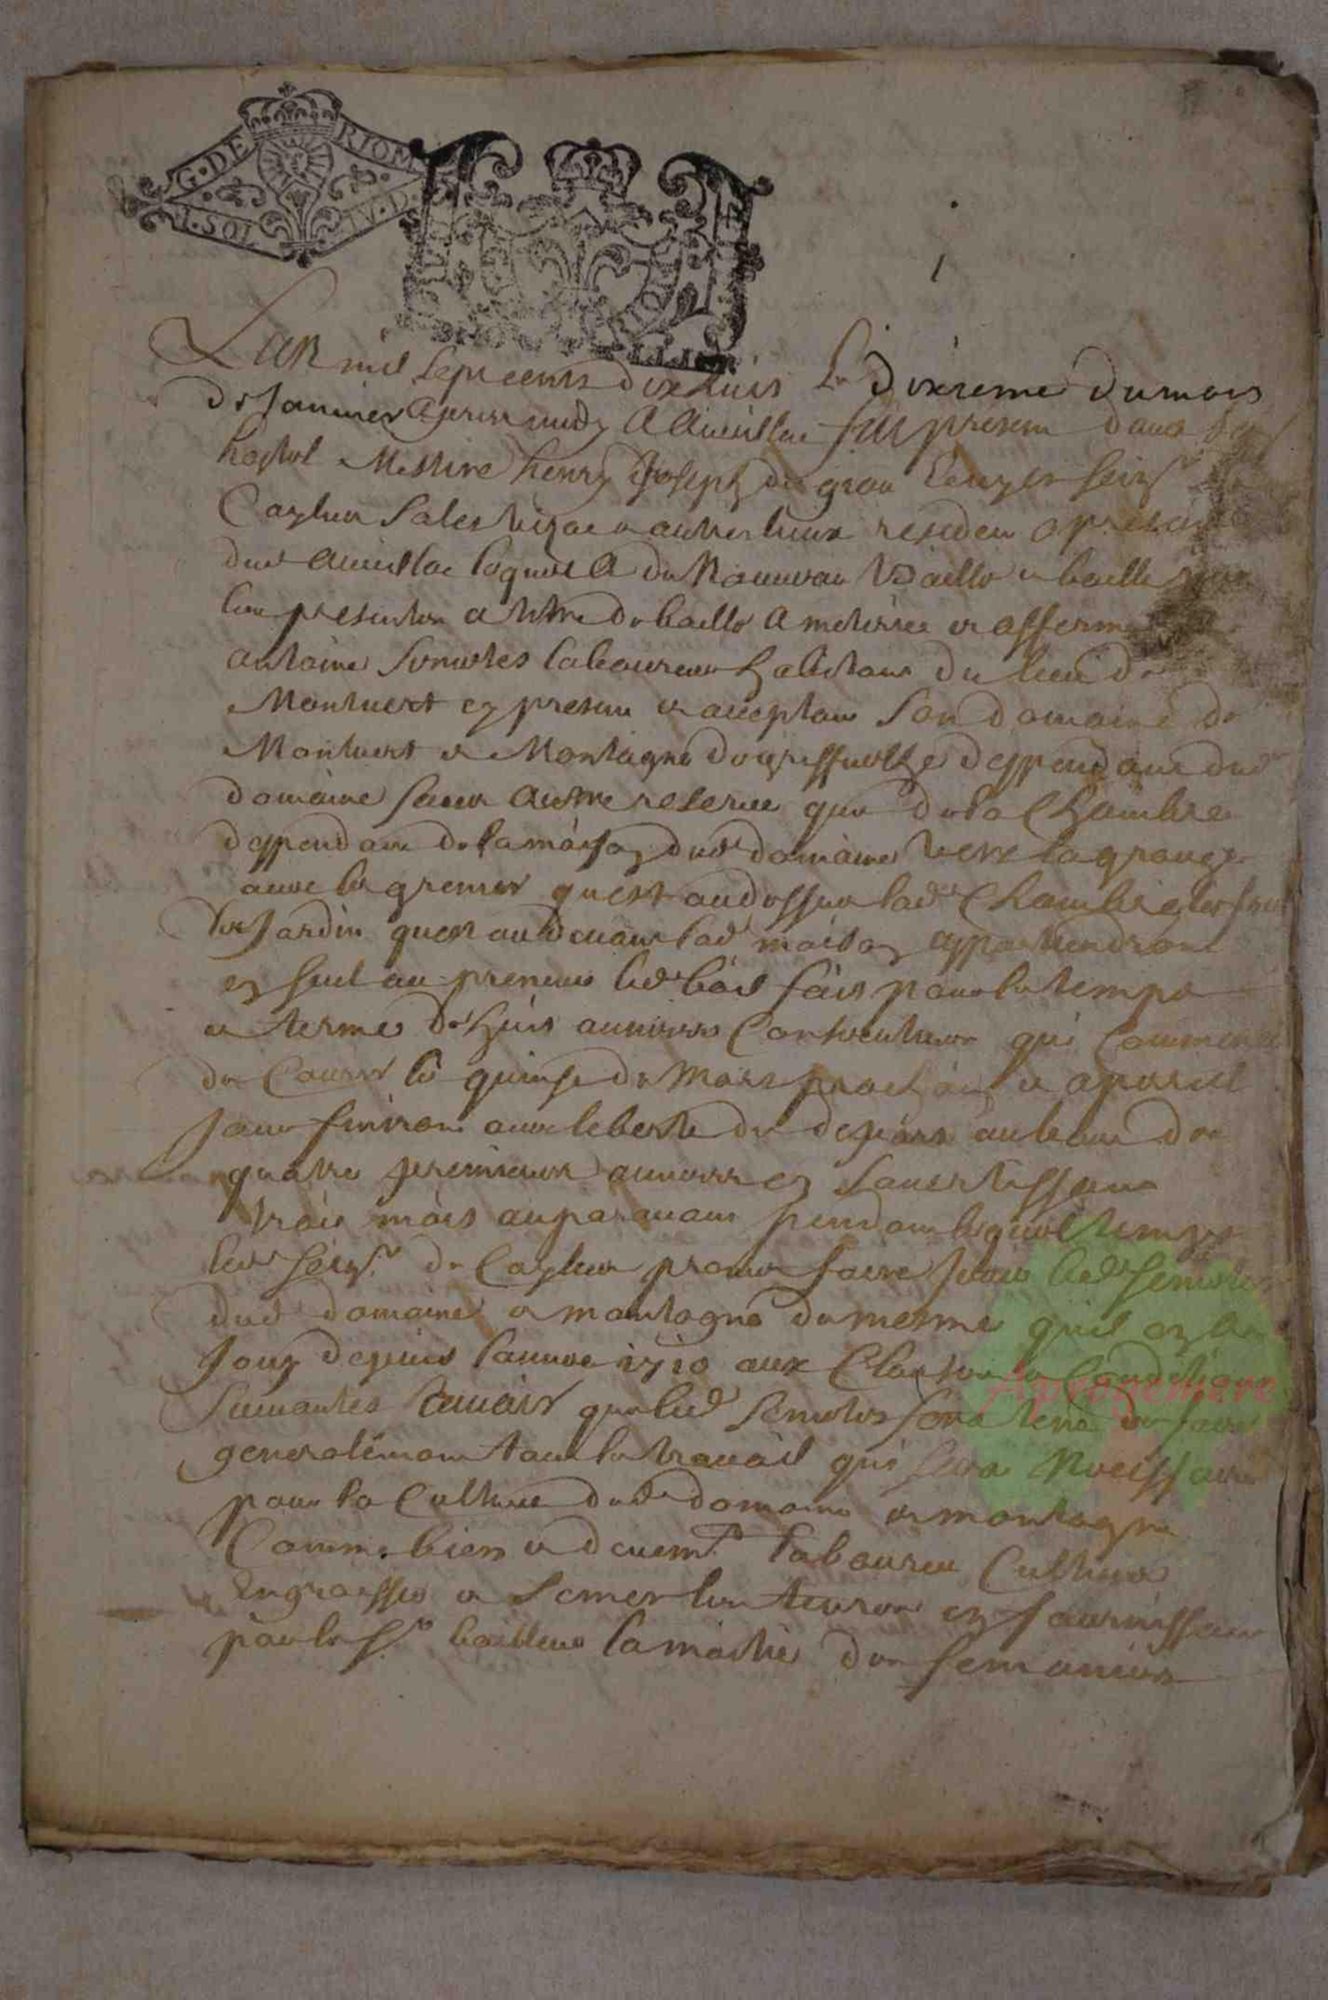 G. DE RIOM
1. SOL IV. D.
1
L'an mil sept cents dix huis Le dixieme du mois
de Janvier apres midy a Aurillac fut presen dans son
hostel Messire henry Joseph de giou Ecuyer seigr de
Caylus Sales vezac & autres lieux residen a present
dud Aurillac lequel a de Nouveau Baillé & baille par
les presentes a titre de baille a meterrie & afferme
antoine laboureur habitans du lieu de
Montvert ez presen & acceptan son domaine de
Montvert & Montagne dependans dud
domaine sans autre reserve que de la Chambre
deppendans de la maison dud domaine vers la grange
avec le grenier qu'est au dessus lad Chambre les fruis
du Jardin qu'est au devans lad maison appartiendront
ez seul au preneur led bail fais pour le temps
& terme de huis annees Consecutives qui Commence
de Courir le quinse de Mars prochain & a pareil
Jour finiron avec liberte de au bout de
quatre premieres annees ez s'avertissans
trois mois auparavans pendan lequel temps
led seigr de Caylus promet faire Jouir led
dud domaine & montagne de mesme qu'il ez a
Jouy depuis l'annee 1710 aux Clauses & Conditions
suivantes scavoir que led sera tené de faire
generalemen tout le travail qui sera Necessaire
pour la Culture dud domaine & montagne
Comme bien & deuemt laboureur Cultiver
Engraisser & semer les terres ez fournissan
par le sr bailleur la moitié des semances
Apronemere